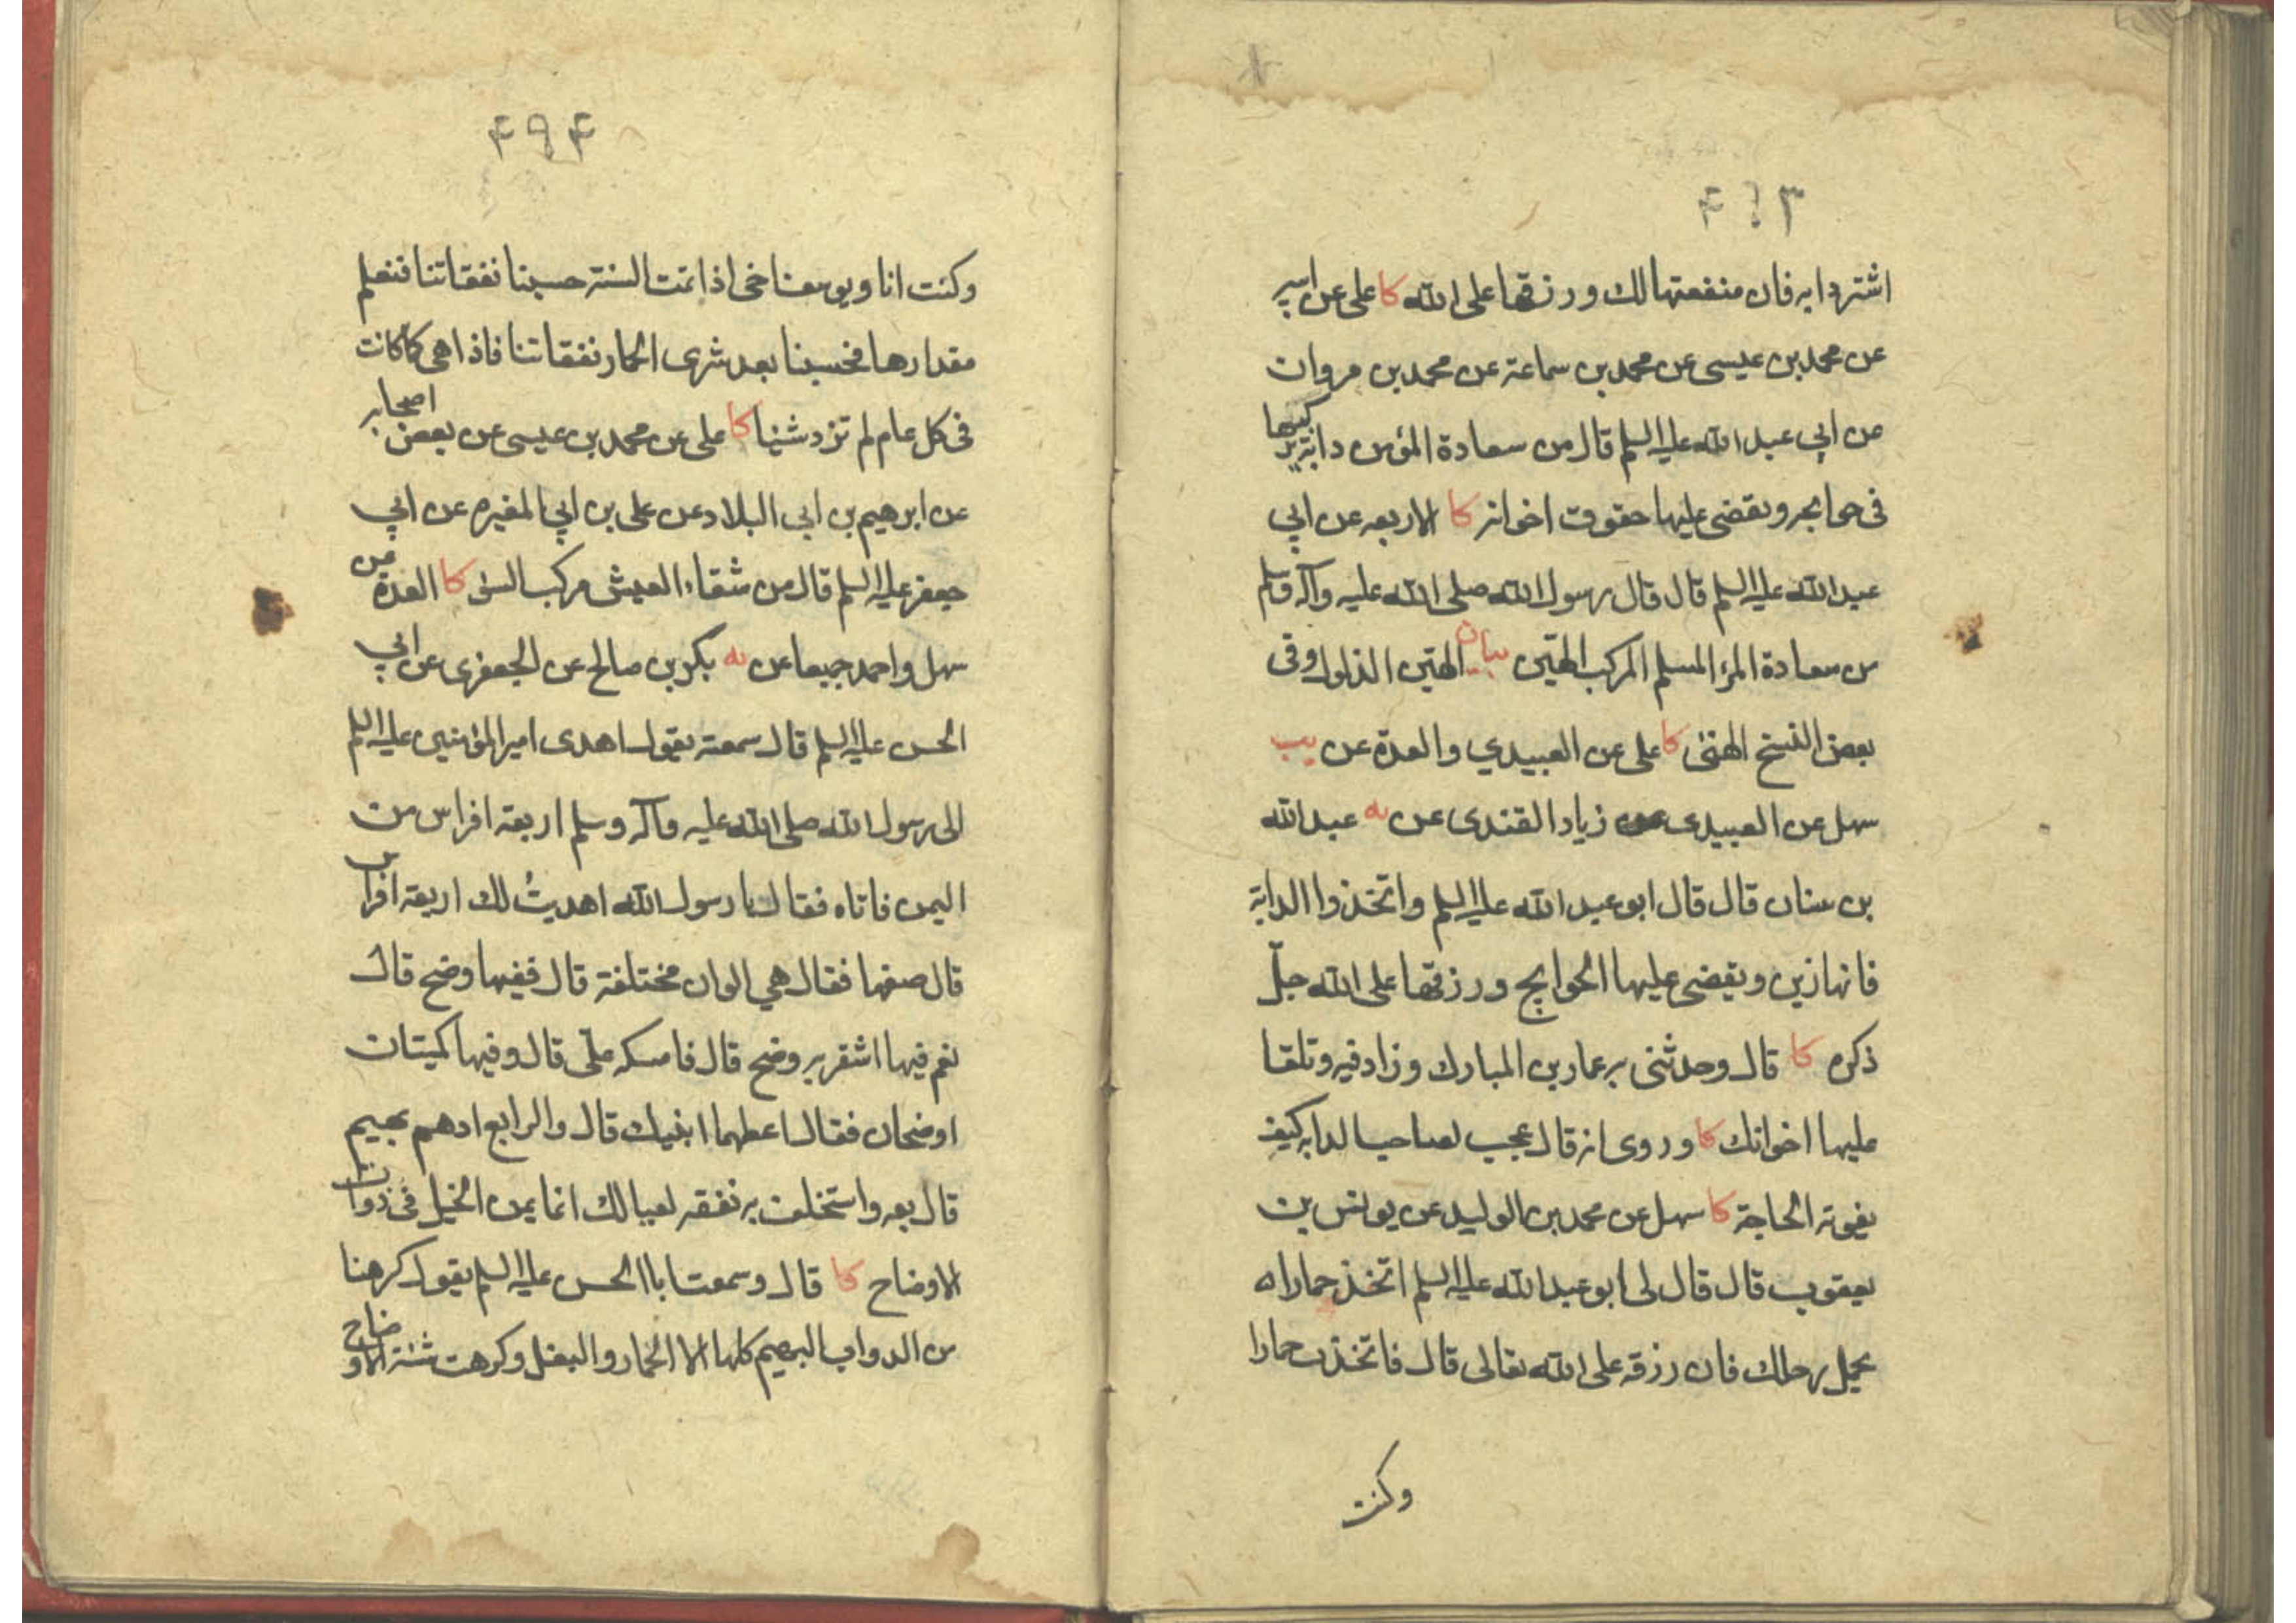 ۴۹۳
اشتر دابه فان منفعتها لك ورزقها على الله كا على عن ابيه
عن محمد بن عيسى عن محمد بن سماعة عن محمد بن مروان
عن ابي عبد الله عليه السلم قال من سعادة المؤمن دابة يركبها
فى حوايجه ويقضى عليها حقوق اخوانه كا الاربعه عن ابي
عبد الله عليه السلم قال قال رسول الله صلى الله عليه وآله وسلم
من سعادة المرء المسلم المركب الهنيّ بيان الهنيّ الذلول وفى
بعض النسخ الهنئ كا على عن العبيدي والعدة عن يب
سهل عن العبيدى عن زياد القندى عن يه عبد الله
بن سنان قال قال ابو عبد الله عليه السلم واتخذوا الدابة
فانها زين ويقضى عليها الحوايج ورزقها على الله جلّ
ذكره كا قال وحدثنى به عمار بن المبارك وزاد فيه وتلقا
عليها اخوانك كا وروى انه قال عجب لصاحب الدابه كيف
يفوته الحاجة كا سهل عن محمد بن الوليد عن يونس بن
يعقوب قال قال لى ابو عبد الله عليه السلم اتخذ حمارا
يحمل رحلك فان رزقه على الله تعالى قال فاتخذت حمارا
وكنت
۴۹۴
وكنت انا ويوسف اخى اذا تمت السنة حسبنا نفقاتنا فنعلم
مقدارها فحسبنا بعد شرى الحمار نفقاتنا فاذا هى كما كانت
فى كل عام لم تزد شيئا كا على عن محمد بن عيسى عن بعض اصحابه
عن ابرهيم بن ابي البلاد عن على بن ابي المغيره عن ابي
جعفر عليه السلم قال من شقاء العيش مركب السوء كا العدة عن
سهل واحمد جميعا عن يه بكر بن صالح عن الجعفرى عن ابي
الحسن عليه السلم قال سمعته يقول اهدى امير المؤمنين عليه السلم
الى رسول الله صلى الله عليه وآله وسلم اربعة افراس من
اليمن فاتاه فقال يا رسول الله اهديتُ لك اربعة افراس
قال صفها فقال هي الوان مختلفة قال ففيها وضح قال
نعم فيها اشقر به وضح قال فامسكه علىّ قال وفيها كميتان
اوضحان فقال اعطهما ابنيك قال والرابع ادهم بهيم
قال بعه واستخلف به نفقه لعيالك انما يمن الخيل فى ذوات
الاوضاح كا قال وسمعت ابا الحسن عليه السلم يقول كرهنا
من الدواب البهيم كلها الا الحمار والبغل وكرهت شية الاوضاح